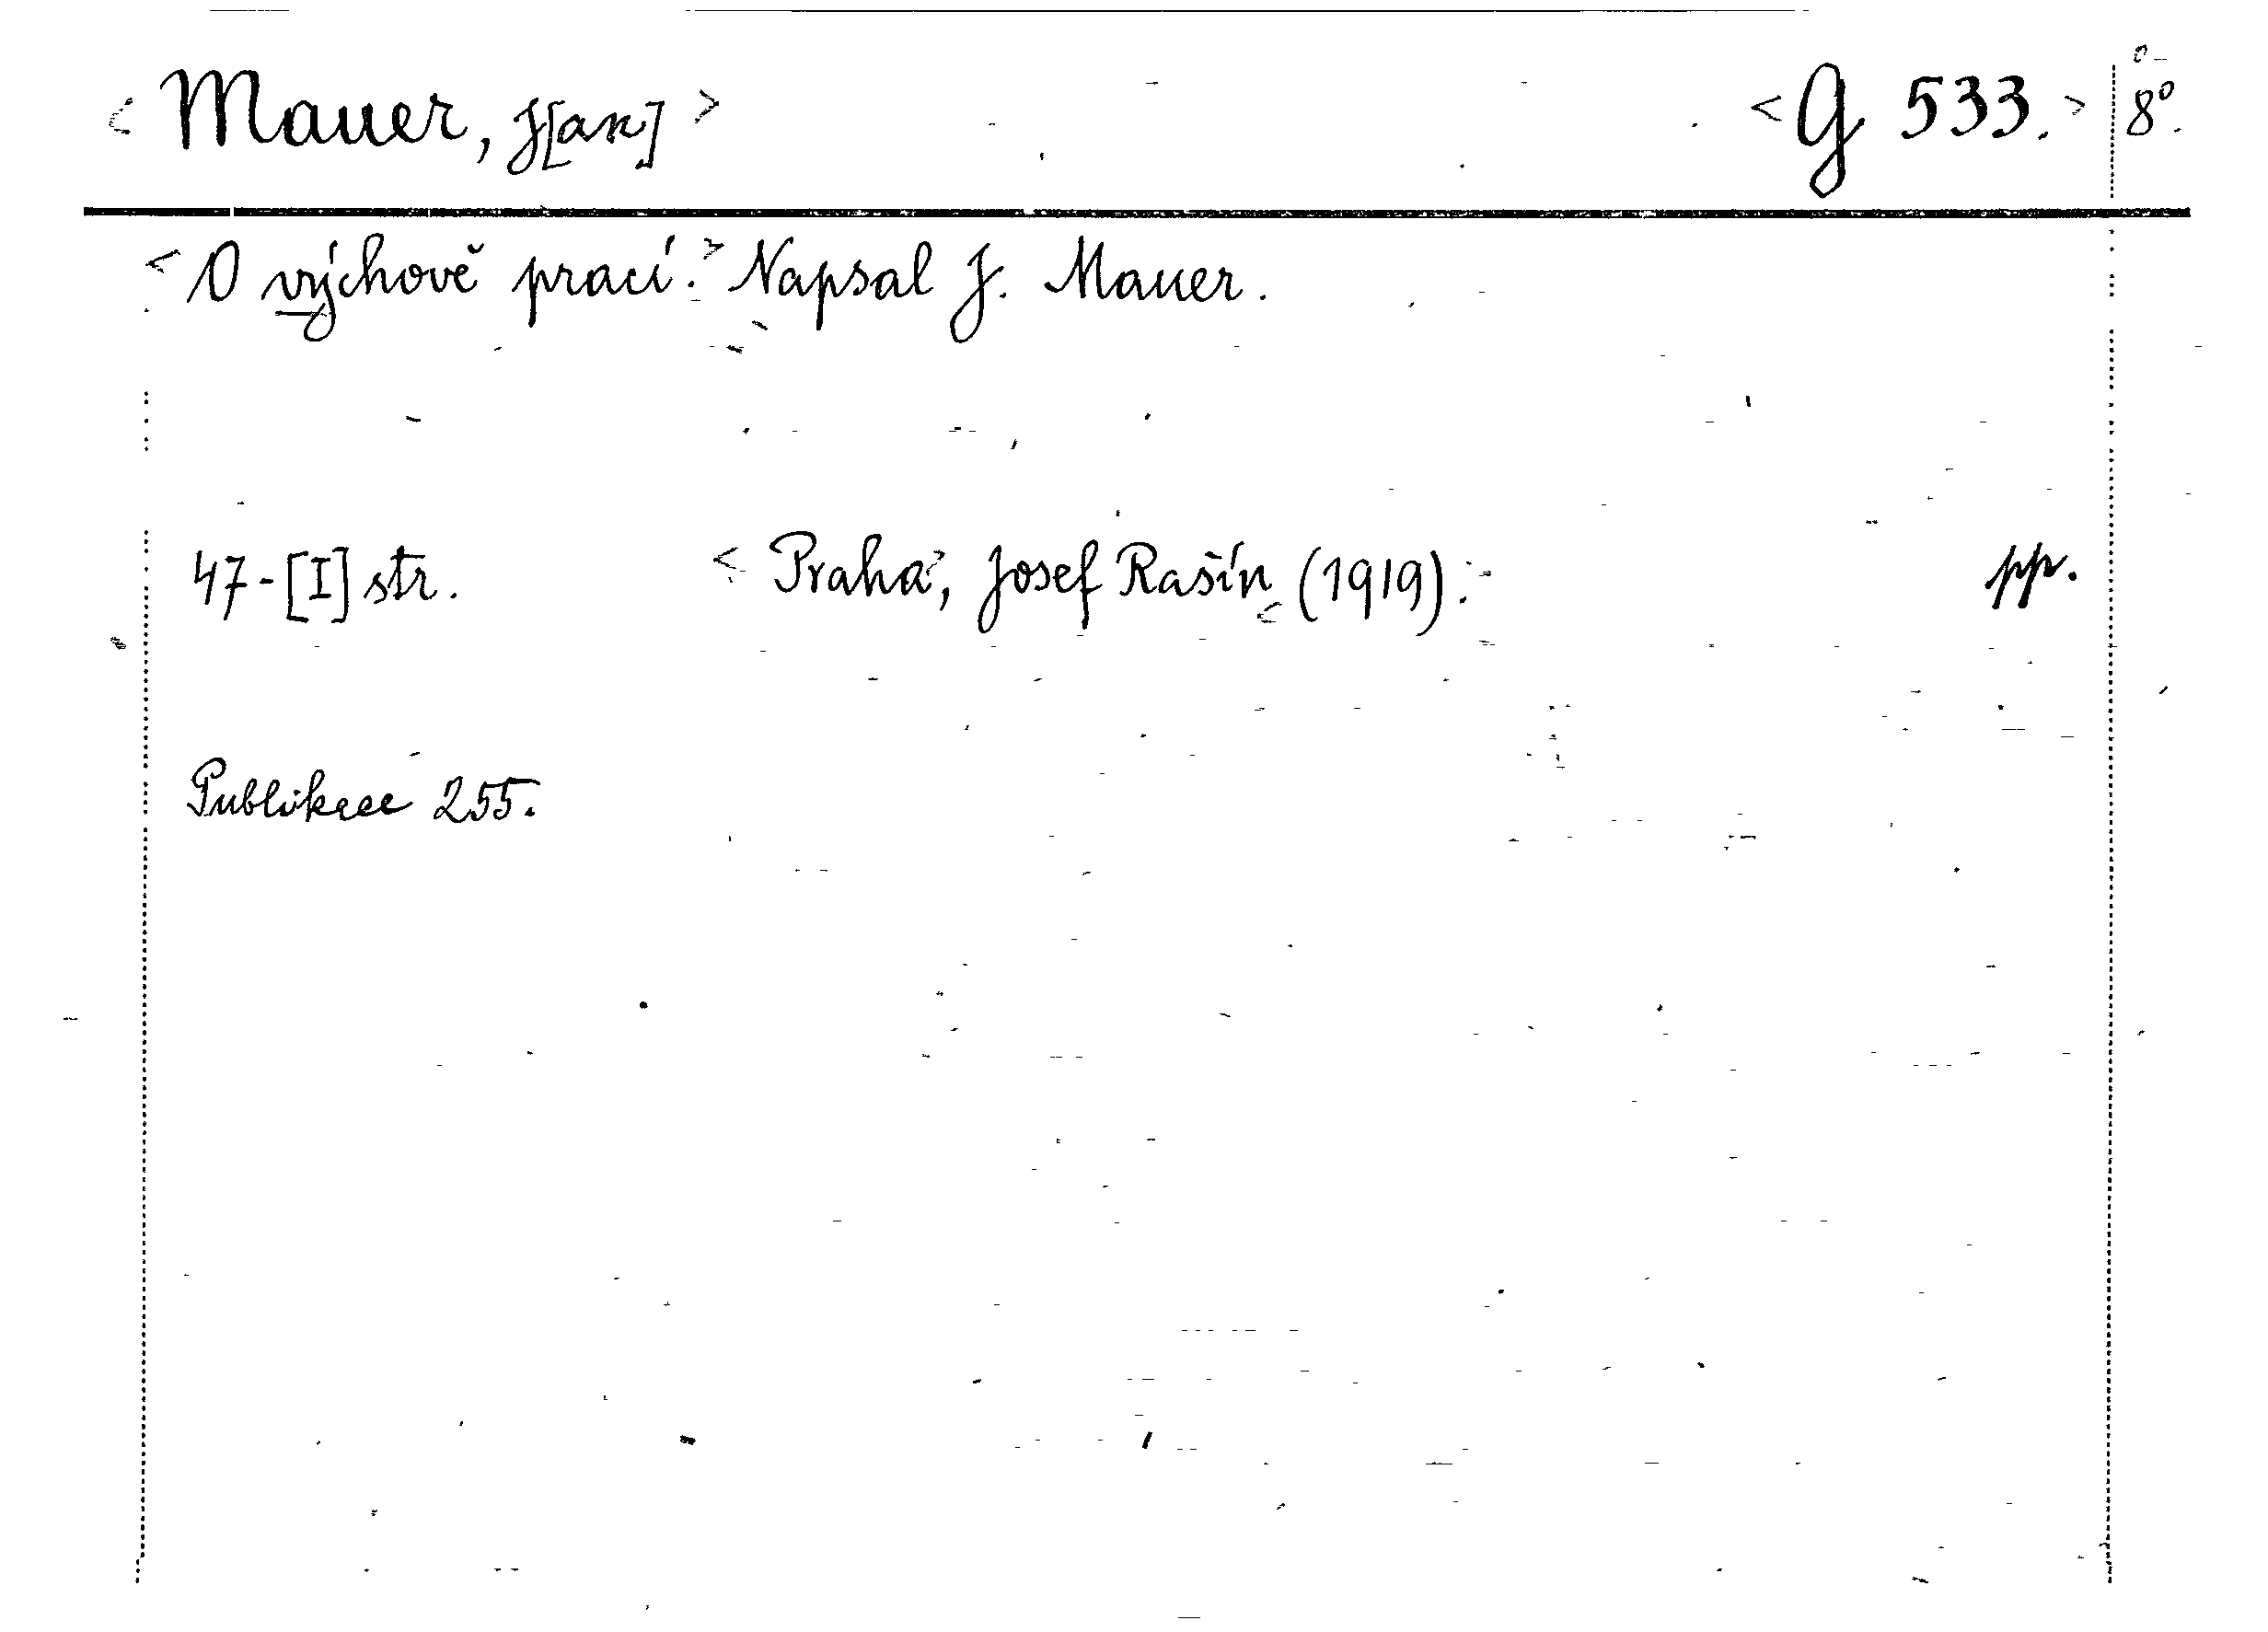 < Mauer, J[an] > < G 533. > 8°.
< O výchově prací. > Napsal J. Mauer.
47-[I] str. < Praha >, Josef Rašín < (1919). pp.
Publikace 255.